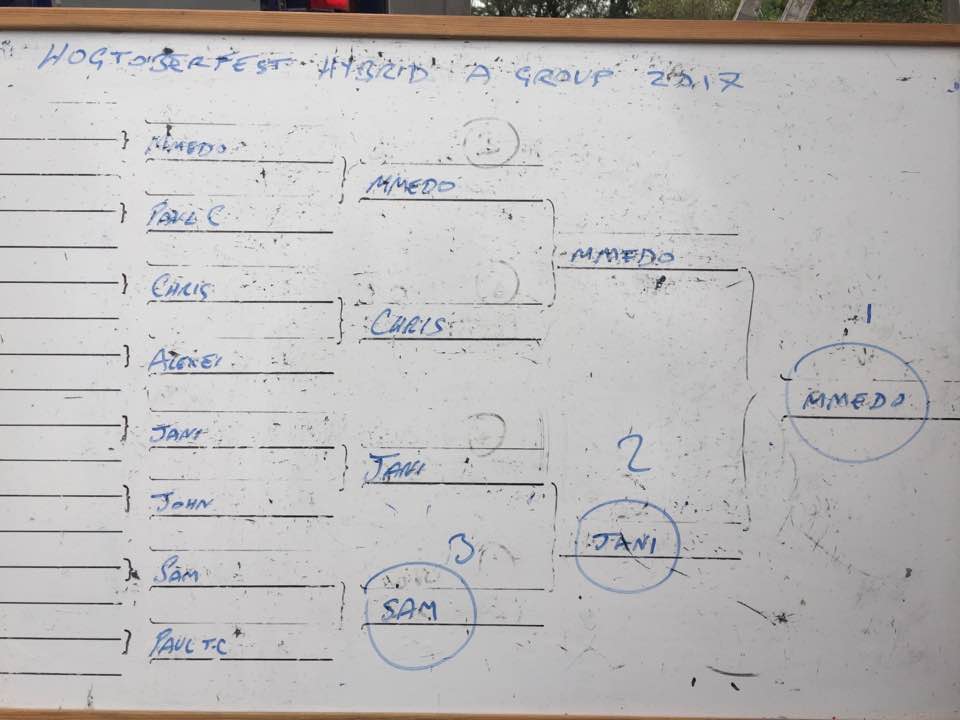 HOGTOBERFEST HYBRID A GROUP 2017
MMEDO
PAUL C
CHRIS
ALEXEI
JANI
JOHN
SAM
PAUL T-C
MMEDO
CHRIS
JANI
3
SAM
MMEDO
2
JANI
1
MMEDO